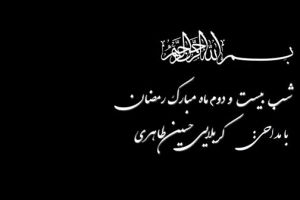 بسم الله الرحمن الرحیم
شب بیست و دوم ماه مبارک رمضان
با مداحی: کربلایی حسین طاهری